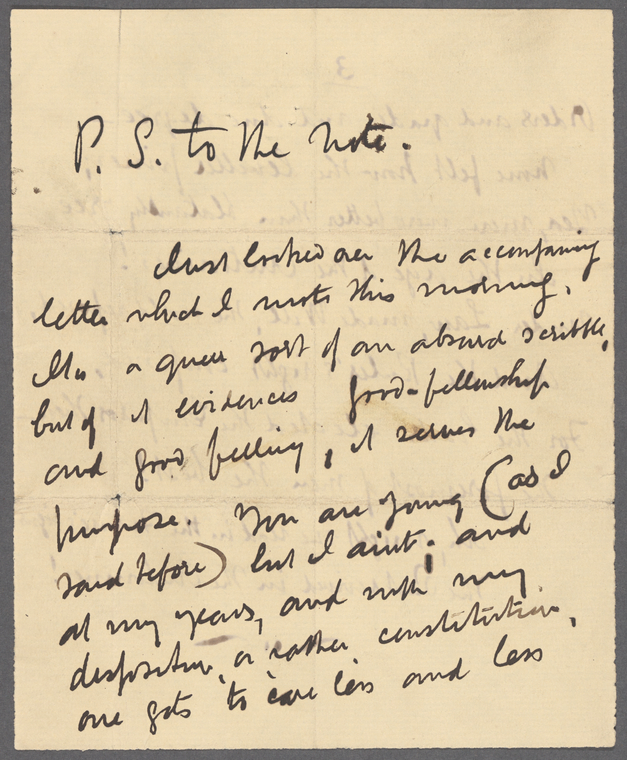 P. S. to the note.
Just looked over the accompanying
letter which I wrote this morning.
It is a queer sort of an absurd scribble,
but if it evidences good-fellowship
and good feeling, it serves the
purpose. You are young (as I
said before) but I aint; and
at my years, and with my
disposition, or rather, constitution,
one gets to care less and less